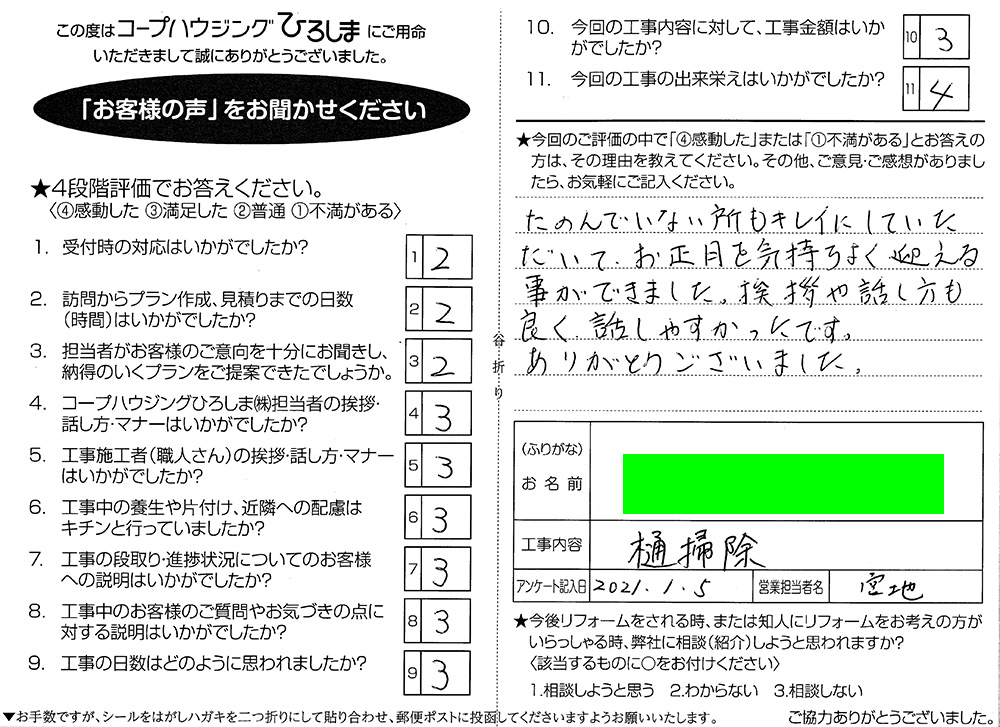 この度はコープハウジングひろしまにご用命
いただきまして誠にありがとうございました。
「お客様の声」をお聞かせください
★4段階評価でお答えください。
〈④感動した ③満足した ②普通 ①不満がある〉
1. 受付時の対応はいかがでしたか?
1 2
2. 訪問からプラン作成、見積りまでの日数
(時間)はいかがでしたか?
2 2
3. 担当者がお客様のご意向を十分にお聞きし、
納得のいくプランをご提案できたでしょうか。
3 2
4. コープハウジングひろしま㈱担当者の挨拶・
話し方・マナーはいかがでしたか?
4 3
5. 工事施工者(職人さん)の挨拶・話し方・マナー
はいかがでしたか?
5 3
6. 工事中の養生や片付け、近隣への配慮は
キチンと行っていましたか?
6 3
7. 工事の段取り・進捗状況についてのお客様
への説明はいかがでしたか?
7 3
8. 工事中のお客様のご質問やお気づきの点に
対する説明はいかがでしたか?
8 3
9. 工事の日数はどのように思われましたか?
9 3
▼お手数ですが、シールをはがしハガキを二つ折りにして貼り合わせ、郵便ポストに投函してくださいますようお願いいたします。
谷折り
10. 今回の工事内容に対して、工事金額はいか
がでしたか?
10 3
11. 今回の工事の出来栄えはいかがでしたか?
11 4
★今回のご評価の中で「④感動した」または「①不満がある」とお答えの
方は、その理由を教えてください。その他、ご意見・ご感想がありまし
たら、お気軽にご記入ください。
たのんでいない所もキレイにしていた
だいて、お正月を気持ちよく迎える
事ができました。挨拶や話し方も
良く、話しやすかったです。
ありがとうございました。
(ふりがな)
お名前
工事内容 樋掃除
アンケート記入日 2021.1.5 営業担当者名 宮地
★今後リフォームをされる時、または知人にリフォームをお考えの方が
いらっしゃる時、弊社に相談(紹介)しようと思われますか?
〈該当するものに○をお付けください〉
1.相談しようと思う 2.わからない 3.相談しない
ご協力ありがとうございました。